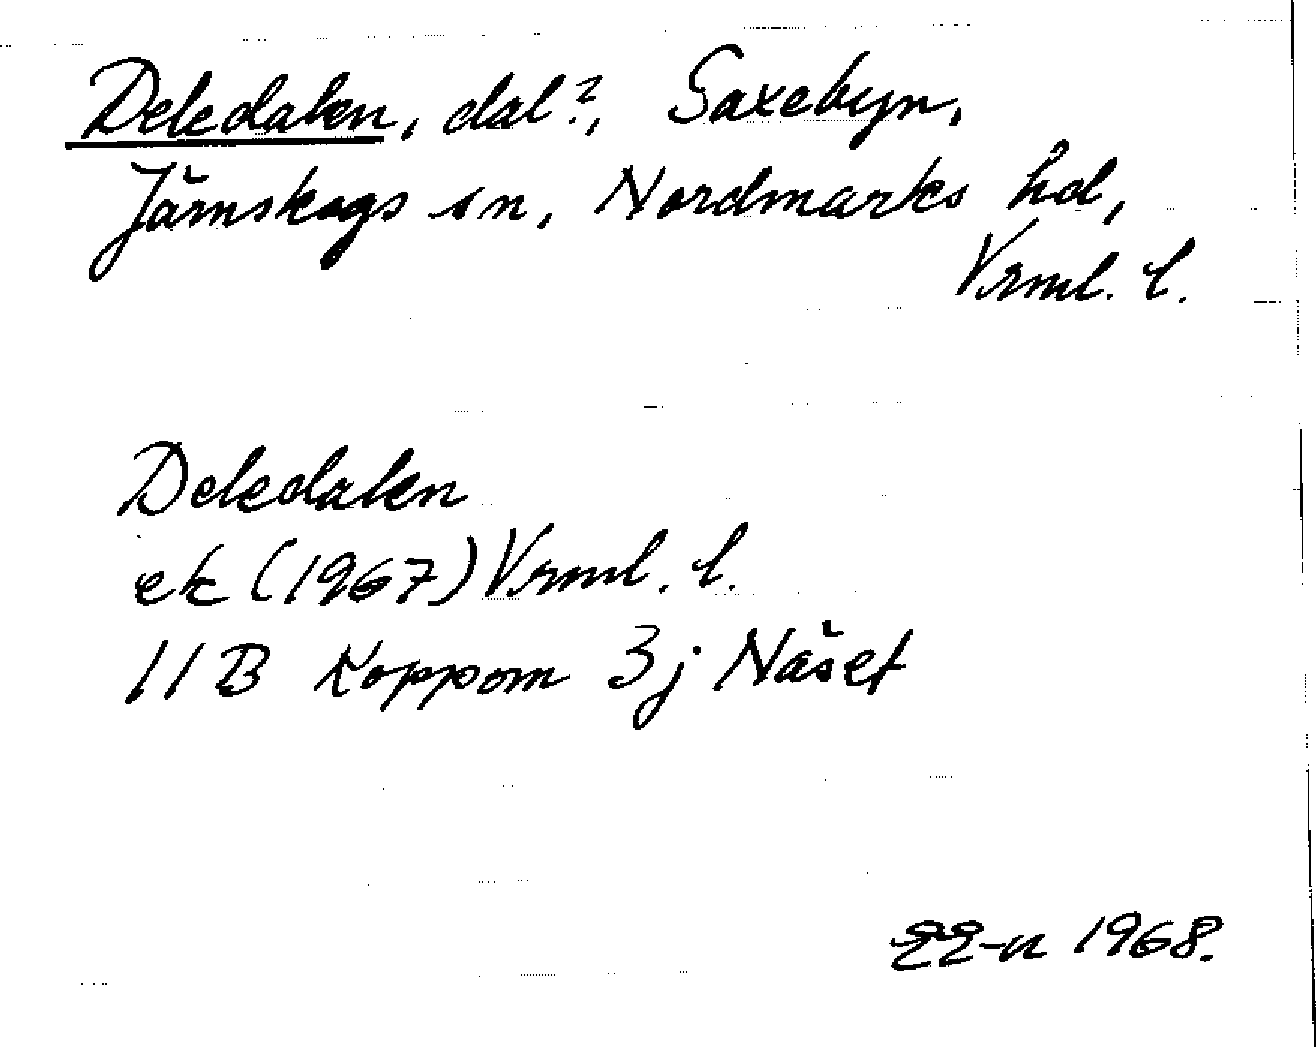 Deledalen, dal?, Saxebyn,
Järnskogs sn, Nordmarks hd,
Vrml. l.
Deledalen
ek (1967) Vrml. l.
11B Koppom 3j Näset
EE-n 1968.